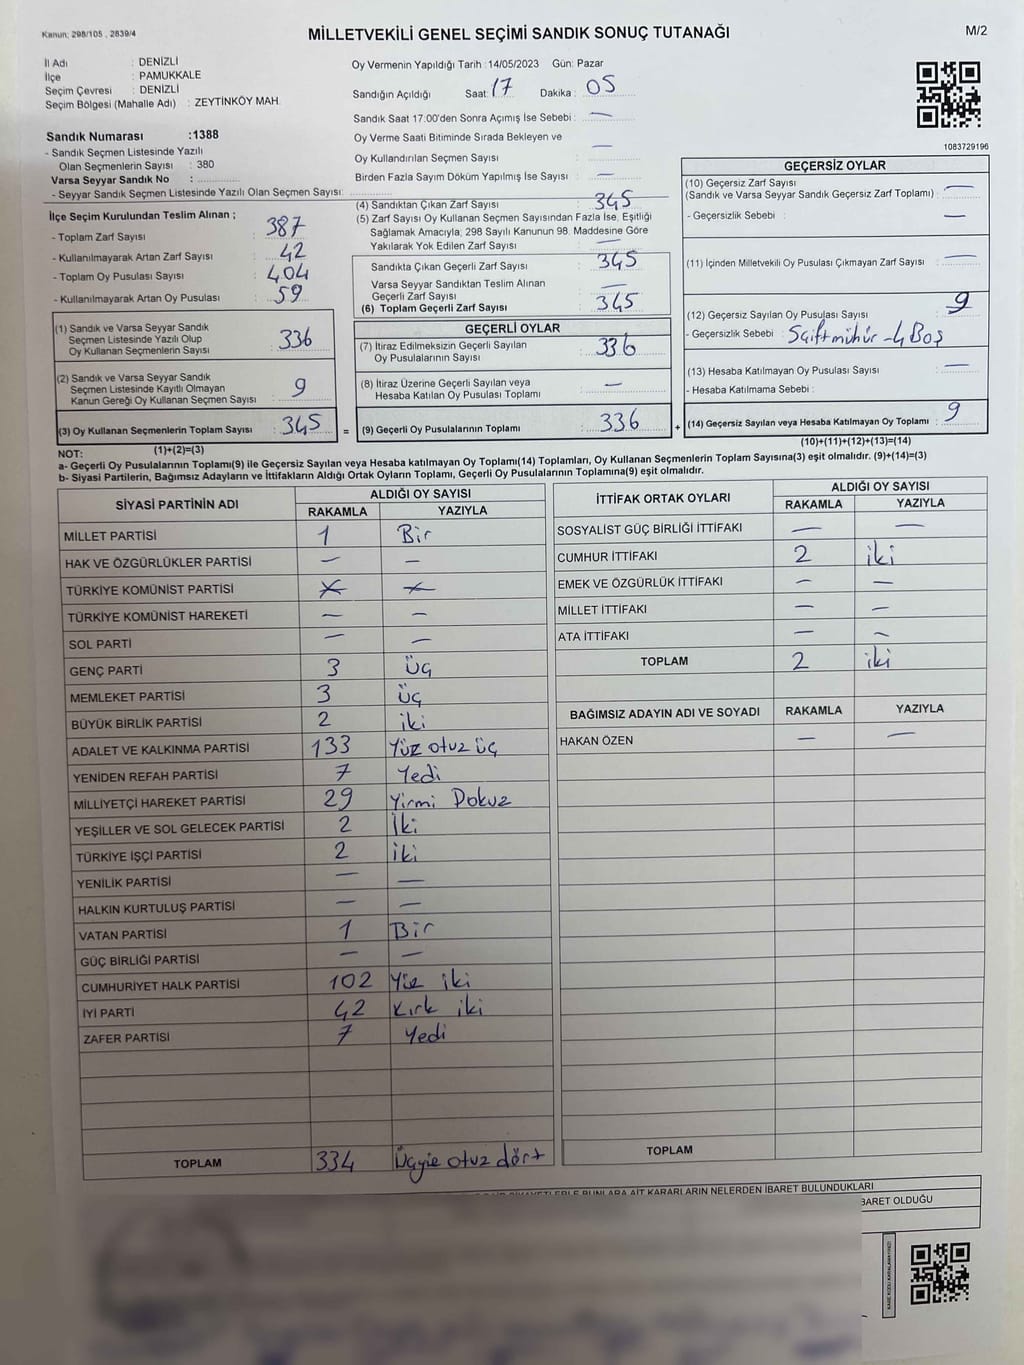 Kanun: 298/105 , 2839/4
MİLLETVEKİLİ GENEL SEÇİMİ SANDIK SONUÇ TUTANAĞI
M/2
İl Adı : DENİZLİ
İlçe : PAMUKKALE
Seçim Çevresi : DENİZLİ
Seçim Bölgesi (Mahalle Adı) : ZEYTİNKÖY MAH.
Sandık Numarası :1388
- Sandık Seçmen Listesinde Yazılı
Olan Seçmenlerin Sayısı : 380
Varsa Seyyar Sandık No :
- Seyyar Sandık Seçmen Listesinde Yazılı Olan Seçmen Sayısı:
Oy Vermenin Yapıldığı Tarih :14/05/2023 Gün: Pazar
Sandığın Açıldığı Saat: 17 Dakika : 05
Sandık Saat 17:00'den Sonra Açımış İse Sebebi : —
Oy Verme Saati Bitiminde Sırada Bekleyen ve
Oy Kullandırılan Seçmen Sayısı —
Birden Fazla Sayım Döküm Yapılmış İse Sayısı : —
1083729196
İlçe Seçim Kurulundan Teslim Alınan ;
- Toplam Zarf Sayısı : 387
- Kullanılmayarak Artan Zarf Sayısı : 42
- Toplam Oy Pusulası Sayısı : 404
- Kullanılmayarak Artan Oy Pusulası : 59
(1) Sandık ve Varsa Seyyar Sandık
Seçmen Listesinde Yazılı Olup
Oy Kullanan Seçmenlerin Sayısı : 336
(2) Sandık ve Varsa Seyyar Sandık
Seçmen Listesinde Kayıtlı Olmayan
Kanun Gereği Oy Kullanan Seçmen Sayısı : 9
(3) Oy Kullanan Seçmenlerin Toplam Sayısı : 345 =
(1)+(2)=(3)
(4) Sandıktan Çıkan Zarf Sayısı : 345
(5) Zarf Sayısı Oy Kullanan Seçmen Sayısından Fazla İse, Eşitliği
Sağlamak Amacıyla, 298 Sayılı Kanunun 98. Maddesine Göre
Yakılarak Yok Edilen Zarf Sayısı : —
Sandıkta Çıkan Geçerli Zarf Sayısı : 345
Varsa Seyyar Sandıktan Teslim Alınan
Geçerli Zarf Sayısı : —
(6) Toplam Geçerli Zarf Sayısı : 345
GEÇERLİ OYLAR
(7) İtiraz Edilmeksizin Geçerli Sayılan
Oy Pusulalarının Sayısı : 336
(8) İtiraz Üzerine Geçerli Sayılan veya
Hesaba Katılan Oy Pusulası Toplamı : —
(9) Geçerli Oy Pusulalarının Toplamı : 336 +
GEÇERSİZ OYLAR
(10) Geçersiz Zarf Sayısı
(Sandık ve Varsa Seyyar Sandık Geçersiz Zarf Toplamı) : —
- Geçersizlik Sebebi : —
(11) İçinden Milletvekili Oy Pusulası Çıkmayan Zarf Sayısı : —
(12) Geçersiz Sayılan Oy Pusulası Sayısı : 9
- Geçersizlik Sebebi : 5çift mühür - 4 Boş
(13) Hesaba Katılmayan Oy Pusulası Sayısı : —
- Hesaba Katılmama Sebebi :
(14) Geçersiz Sayılan veya Hesaba Katılmayan Oy Toplamı : 9
(10)+(11)+(12)+(13)=(14)
NOT:
a- Geçerli Oy Pusulalarının Toplamı(9) ile Geçersiz Sayılan veya Hesaba katılmayan Oy Toplamı(14) Toplamları, Oy Kullanan Seçmenlerin Toplam Sayısına(3) eşit olmalıdır. (9)+(14)=(3)
b- Siyasi Partilerin, Bağımsız Adayların ve İttifakların Aldığı Ortak Oyların Toplamı, Geçerli Oy Pusulalarının Toplamına(9) eşit olmalıdır.
SİYASİ PARTİNİN ADI ALDIĞI OY SAYISI
RAKAMLA YAZIYLA
MİLLET PARTİSİ 1 Bir
HAK VE ÖZGÜRLÜKLER PARTİSİ — —
TÜRKİYE KOMÜNİST PARTİSİ
TÜRKİYE KOMÜNİST HAREKETİ — —
SOL PARTİ — —
GENÇ PARTİ 3 üç
MEMLEKET PARTİSİ 3 üç
BÜYÜK BİRLİK PARTİSİ 2 iki
ADALET VE KALKINMA PARTİSİ 133 Yüz otuz üç
YENİDEN REFAH PARTİSİ 7 Yedi
MİLLİYETÇİ HAREKET PARTİSİ 29 Yirmi Dokuz
YEŞİLLER VE SOL GELECEK PARTİSİ 2 İki
TÜRKİYE İŞÇİ PARTİSİ 2 iki
YENİLİK PARTİSİ — —
HALKIN KURTULUŞ PARTİSİ — —
VATAN PARTİSİ 1 Bir
GÜÇ BİRLİĞİ PARTİSİ — —
CUMHURİYET HALK PARTİSİ 102 Yüz iki
İYİ PARTİ 42 Kırk iki
ZAFER PARTİSİ 7 Yedi
TOPLAM 334 Üçyüz otuz dört
İTTİFAK ORTAK OYLARI ALDIĞI OY SAYISI
RAKAMLA YAZIYLA
SOSYALİST GÜÇ BİRLİĞİ İTTİFAKI — —
CUMHUR İTTİFAKI 2 iki
EMEK VE ÖZGÜRLÜK İTTİFAKI — —
MİLLET İTTİFAKI — —
ATA İTTİFAKI — —
TOPLAM 2 iki
BAĞIMSIZ ADAYIN ADI VE SOYADI RAKAMLA YAZIYLA
HAKAN ÖZEN — —
TOPLAM
BUNLARA AİT KARARLARIN NELERDEN İBARET BULUNDUKLARI
BARET OLDUĞU